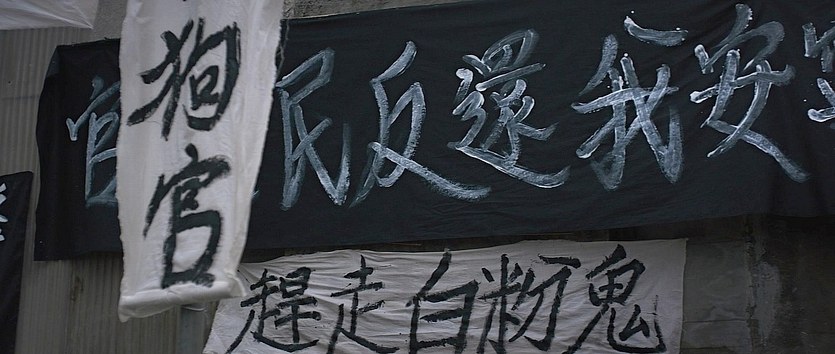 狗官
官民反還我安
趕走白粉鬼